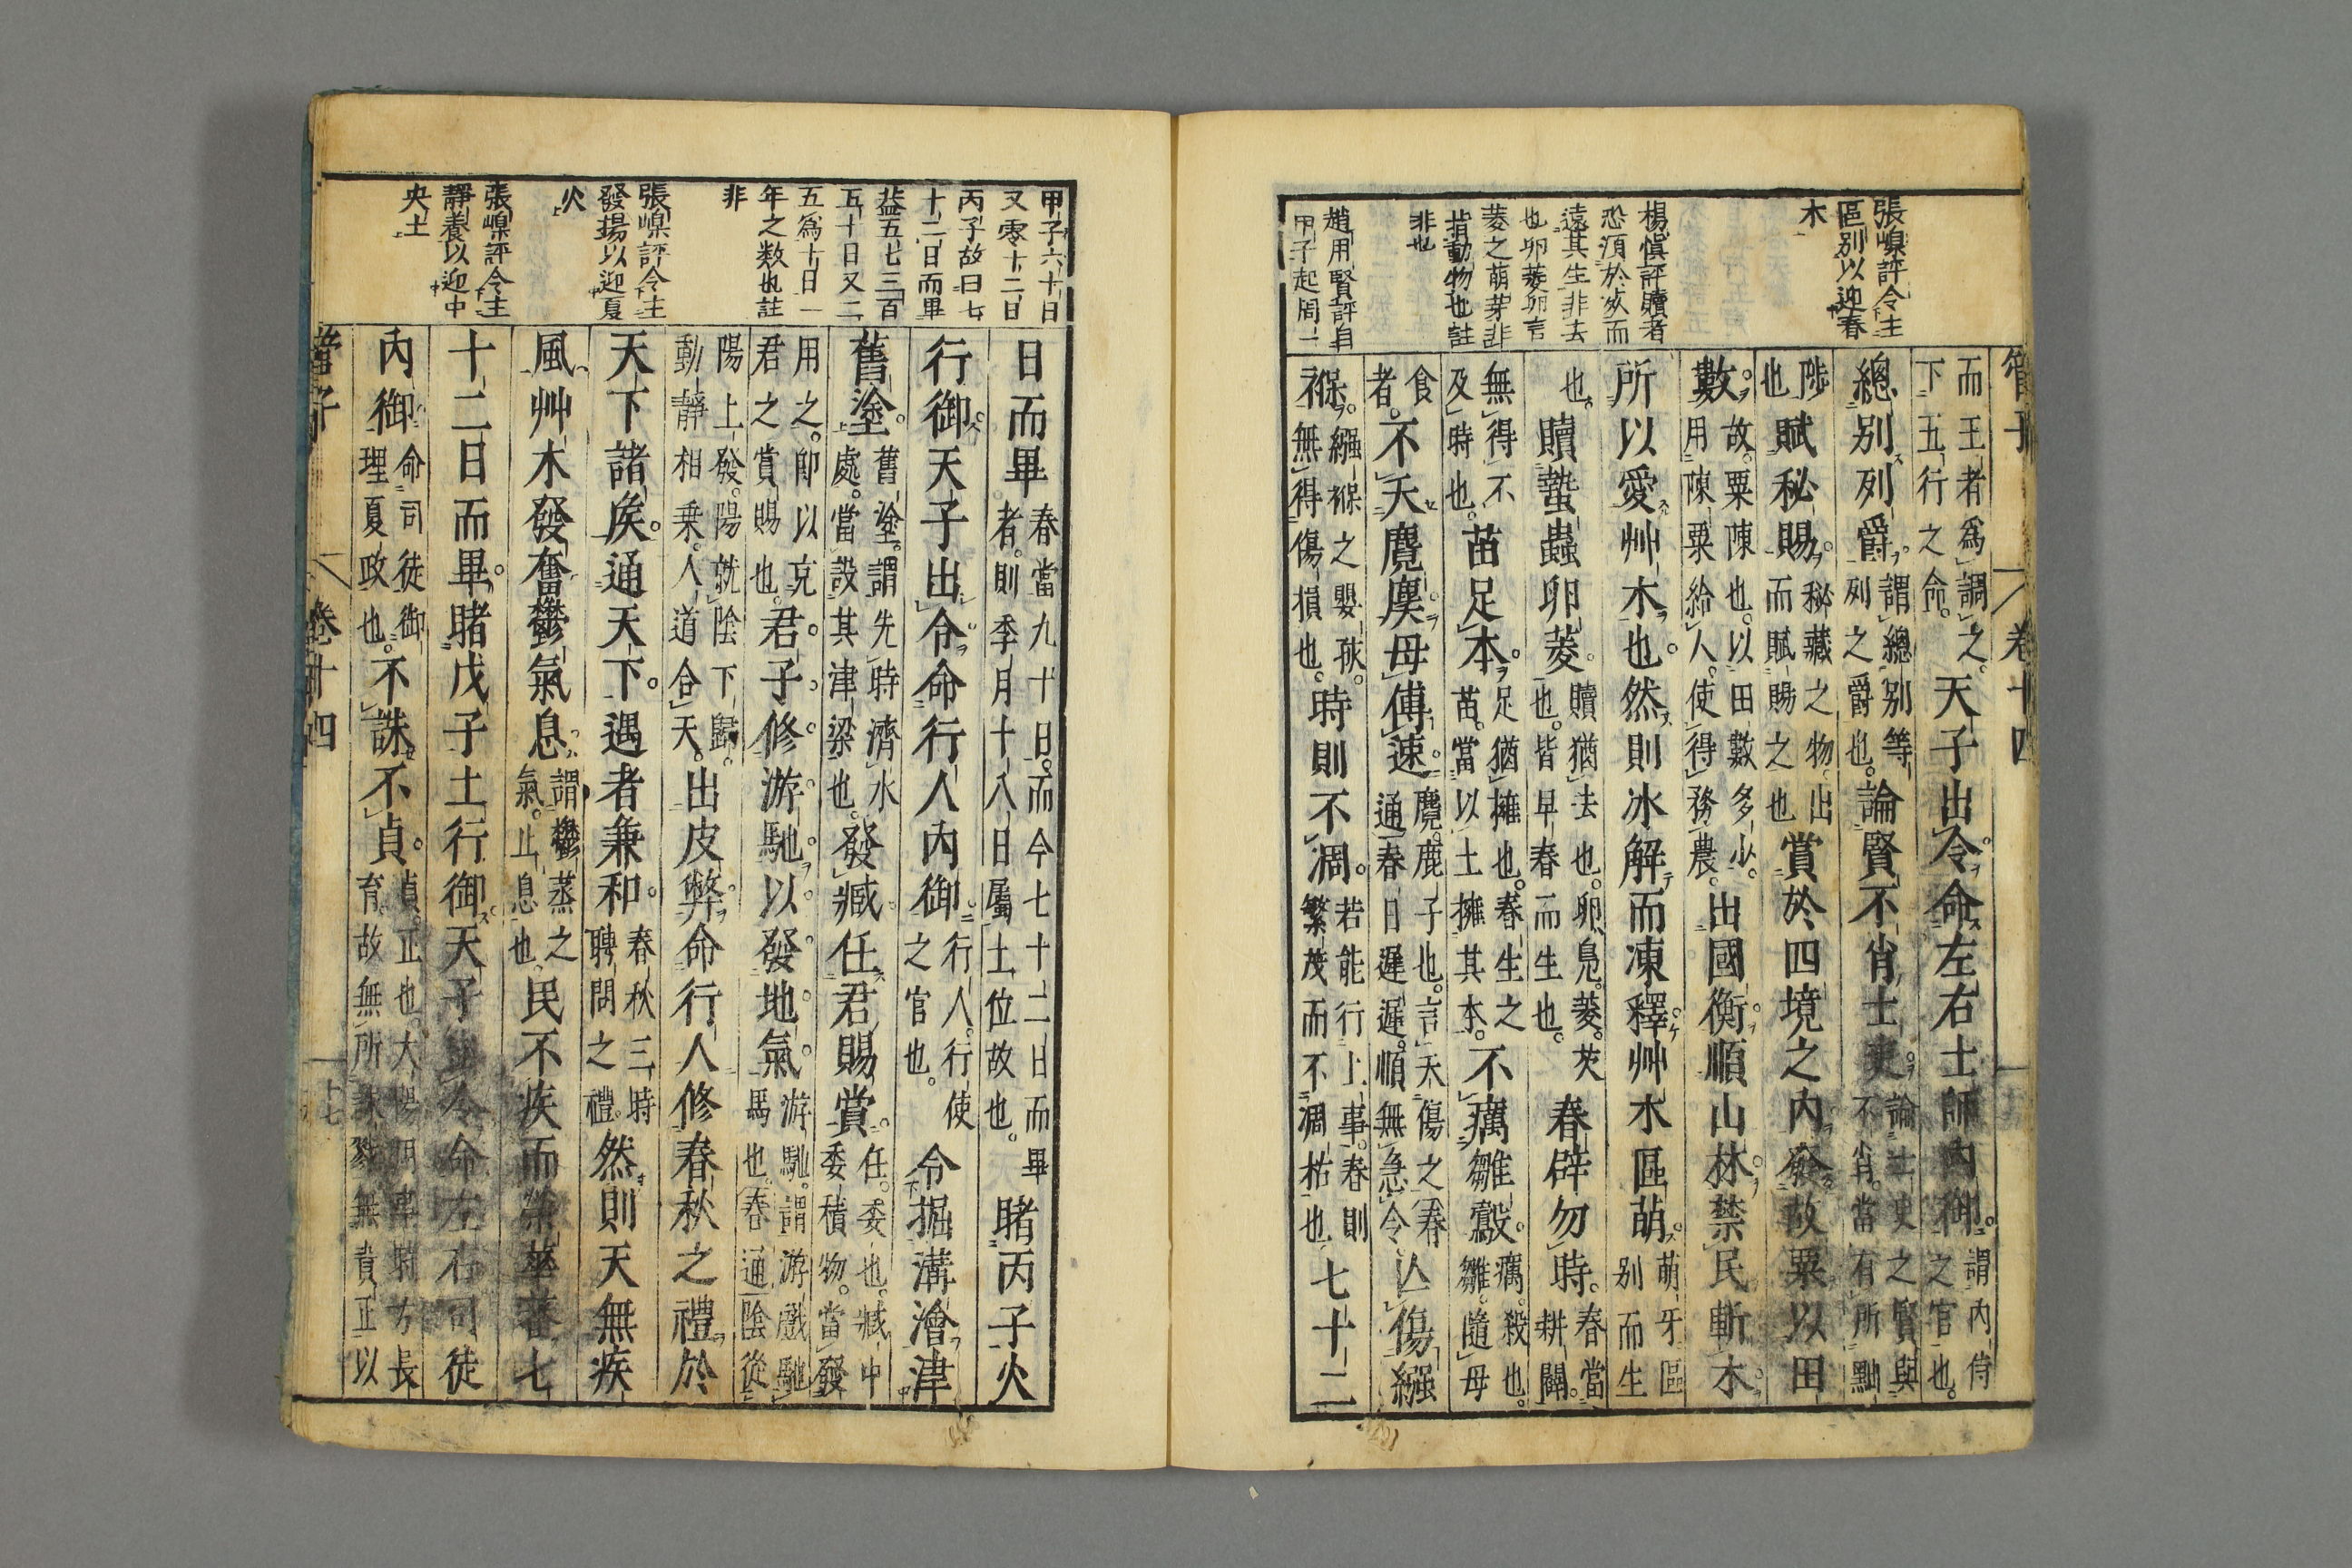 管子 卷十四
張嵲評令主
區别以迎春
木
楊慎評贖者
恐須於炎而
遠其生非去
也卵菱卵言
菱之萌芽非
指動物也註
非也
趙用賢評自
甲子起周一
而王者為調之下五行之命天子出令命左右士師內御謂內侍之官也
總别列爵謂總别等列之爵也論賢不肖士吏論士吏之賢與不肖當有所黜
陟也賦秘賜秘藏之物出而賦賜之也賞於四境之内發故粟以田
數故粟陳也以田數多少用陳粟給人使得務農出國衡順山林禁民斬木
所以愛艸木也然則冰解而凍釋艸木區萌萌牙區别而生
也贖蟄蟲卵菱贖猶去也卵鳧菱芡也皆早春而生也春辟勿時春當耕闢
無得不及時也苗足本足猶擁也春生之苗當以土擁其本不癘雛鷇癘殺也雛隨母
食者不夭麑麌母傅速麑鹿子也言天傷之春通春日遲遲順無急令亾傷繦
褓繦褓之嬰孩無得傷損也時則不凋若能行上事春則繁茂而不凋枯也七十二
甲子六十日
又零十二日
丙子故曰七
十二日而畢
益五七三百
五十日又二
五爲十日一
年之数也註
非
張嵲評令主
發揚以迎夏
火
張嵲評令主
靜養以迎中
央土
日而畢春當九十日而今七十二日而畢者則季月十八日屬土位故也睹丙子火
行御天子出令命行人内御行人行使之官也令掘溝澮津
舊塗舊塗謂先時濟水處當設其津梁也發臧任君賜賞任委也臧中委積物當發
用之卽以充君之賞賜也君子修游馳以發地氣游馳謂游戲馳馬也春通陰從
陽上發陽就陰下歸動靜相乗人道合天出皮弊命行人修春秋之禮於
天下諸矦通天下遇者兼和春秋三時聘問之禮然則天無疾
風艸木發奮鬱氣息謂鬱蒸之氣止息也民不疾而榮華蕃七
十二日而畢睹戊子土行御天子出令命左右司徒
内御命司徒御理夏政也不誅不貞貞正也大陽用事時方長育故無所誅戮無責正以
管子 卷十四 十七